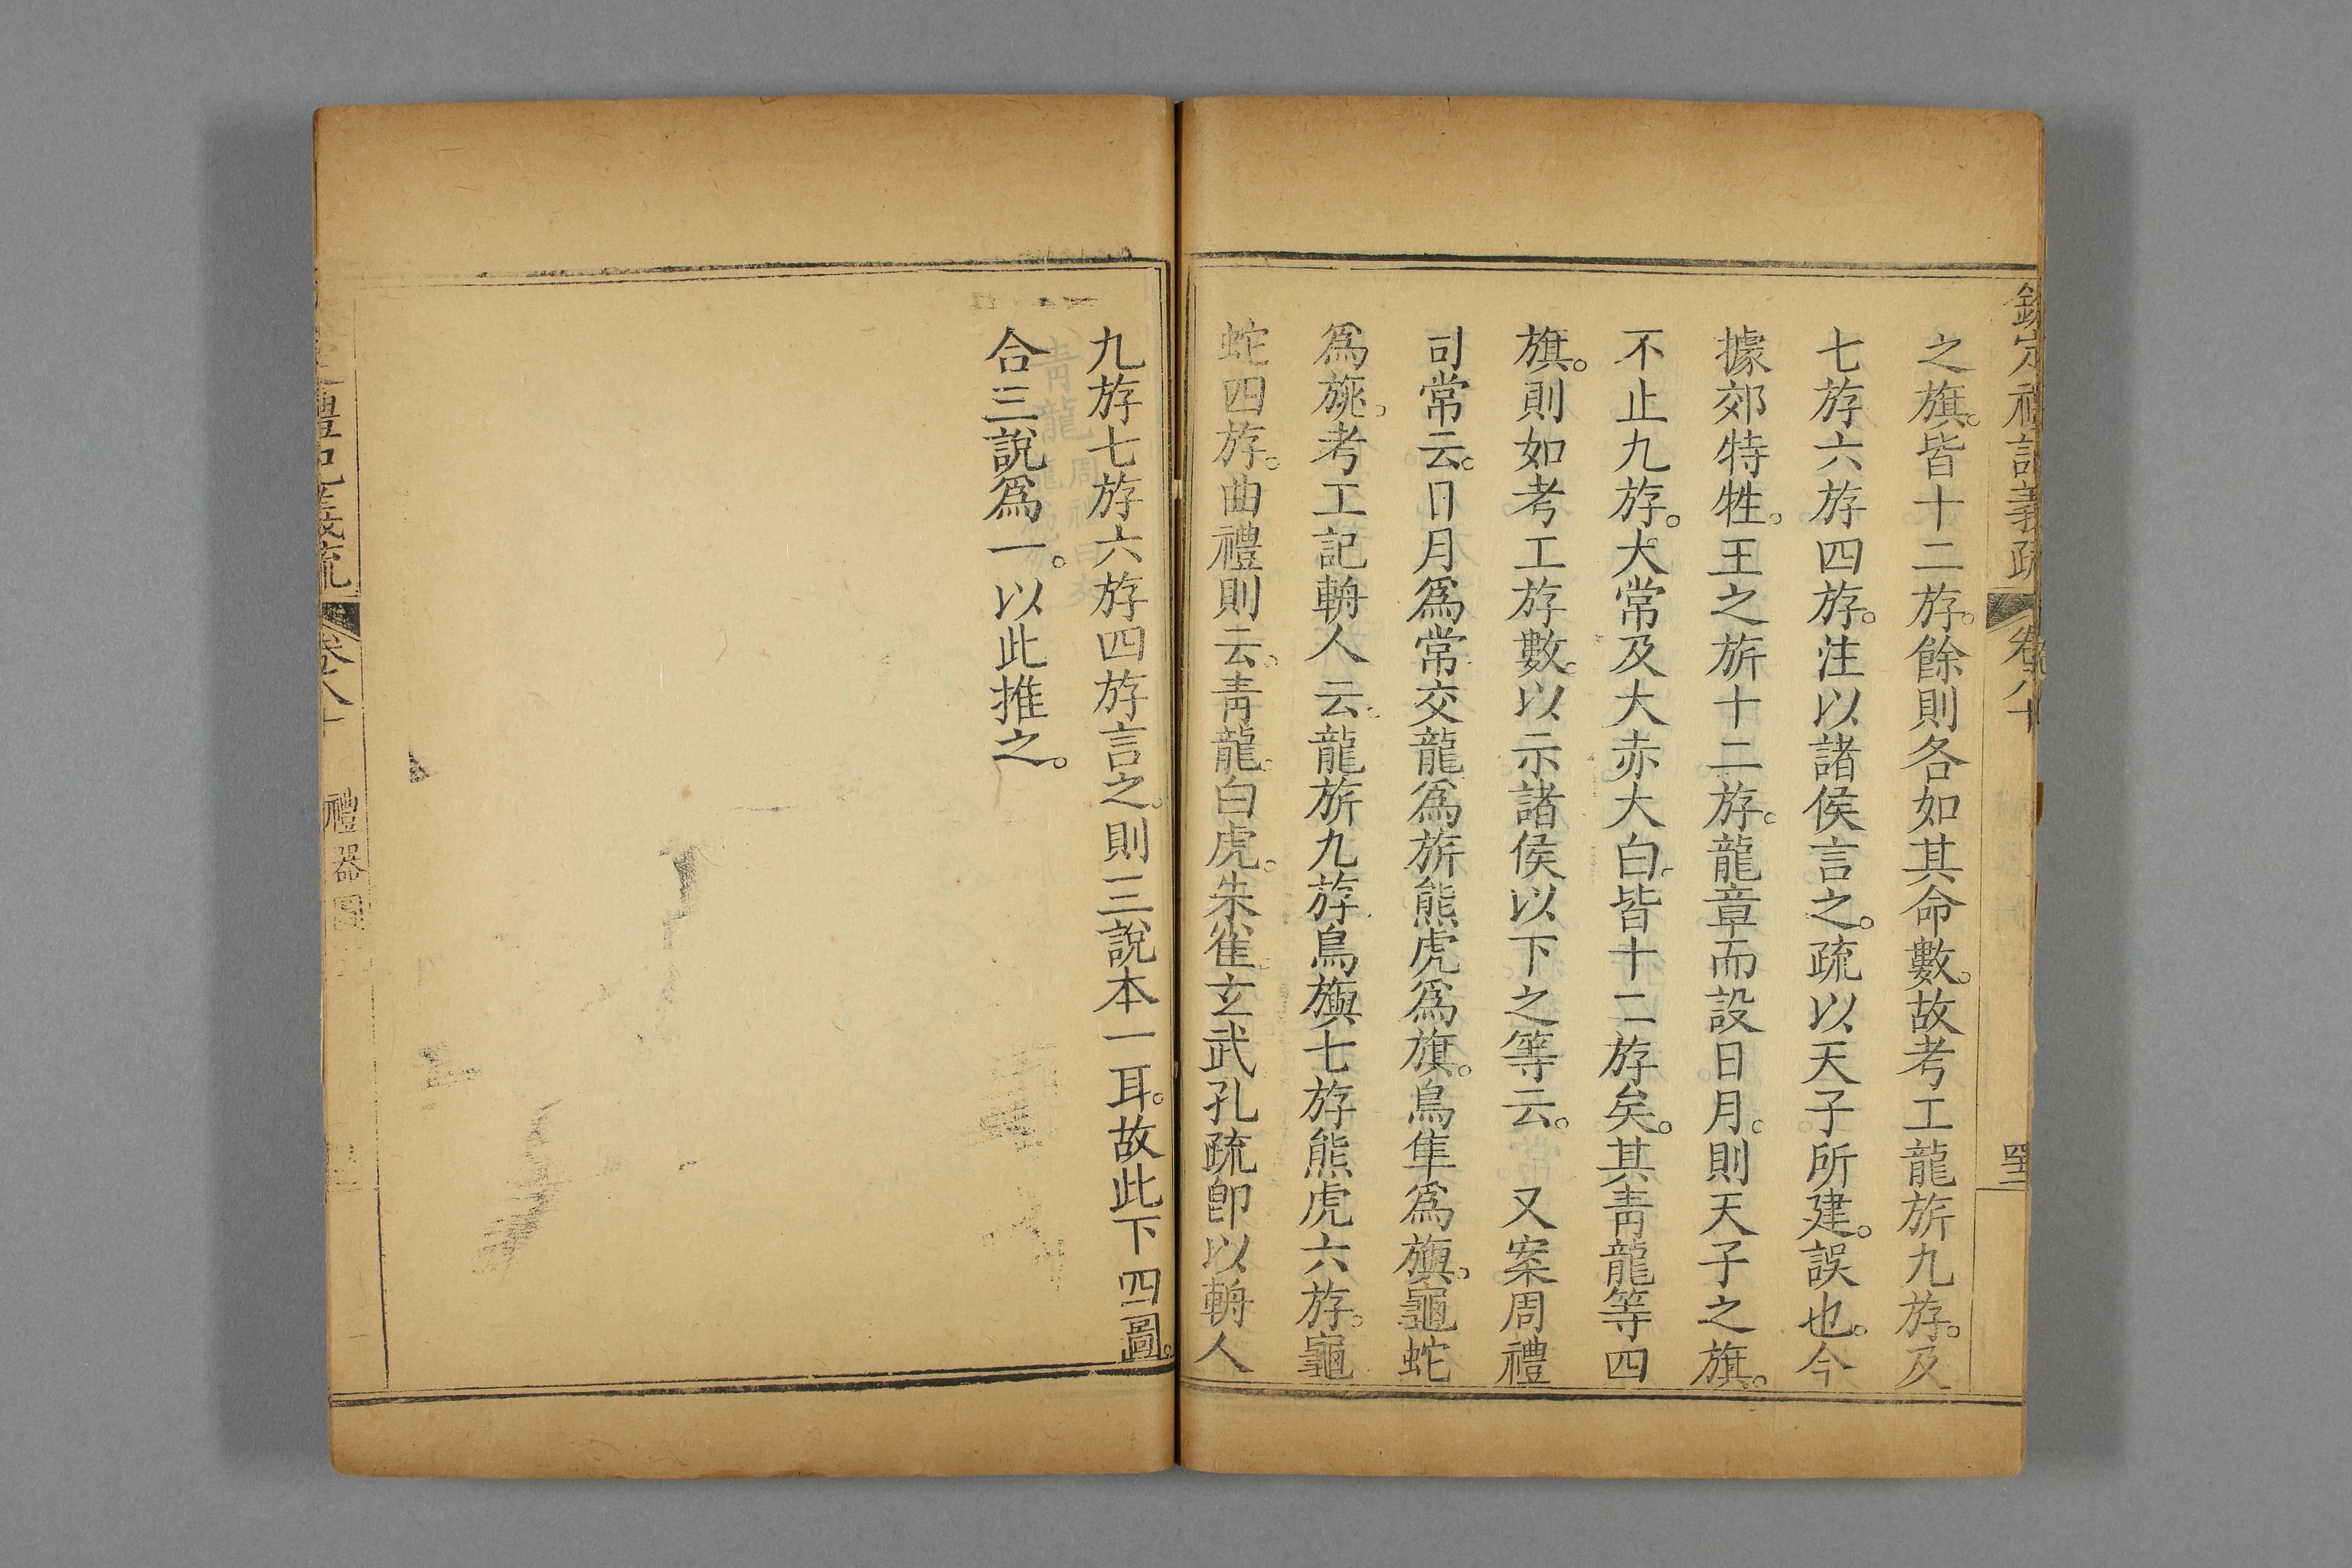 欽定禮記義疏 卷八十 四三
之旗。皆十二斿。餘則各如其命數。故考工龍旂九斿。及
七斿六斿四斿。注以諸侯言之。疏以天子所建。誤也。今
據郊特牲。王之旂十二斿。龍章而設日月。則天子之旗。
不止九斿。大常及大赤大白。皆十二斿矣。其青龍等四
旗。則如考工斿數。以示諸侯以下之等云。 又案周禮
司常云。日月爲常交龍爲旂熊虎爲旗。鳥隼爲旟。龜蛇
爲旐。考工記輈人云。龍旂九斿鳥旟七斿熊虎六斿。龜
蛇四斿。曲禮則云。青龍。白虎。朱雀。玄武孔疏卽以輈人
九斿七斿六斿四斿言之。則三說本一耳。故此下四圖。
合三說爲一。以此推之。
禮記義疏 卷八十 禮器圖